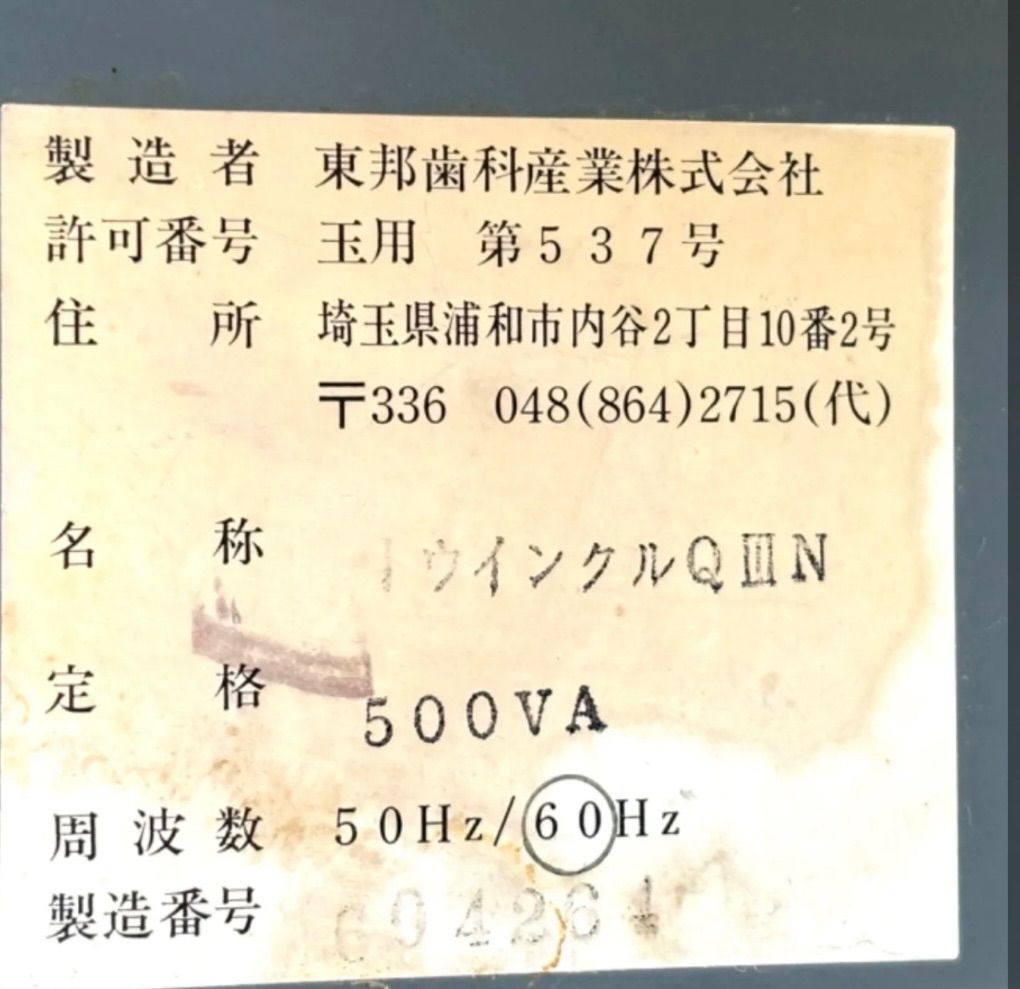 製造者 東邦歯科産業株式会社
許可番号 玉用 第537号
住所 埼玉県浦和市内谷2丁目10番2号
〒336 048(864)2715(代)
名称 トウインクルQⅢN
定格 500VA
周波数 50Hz/60Hz
製造番号